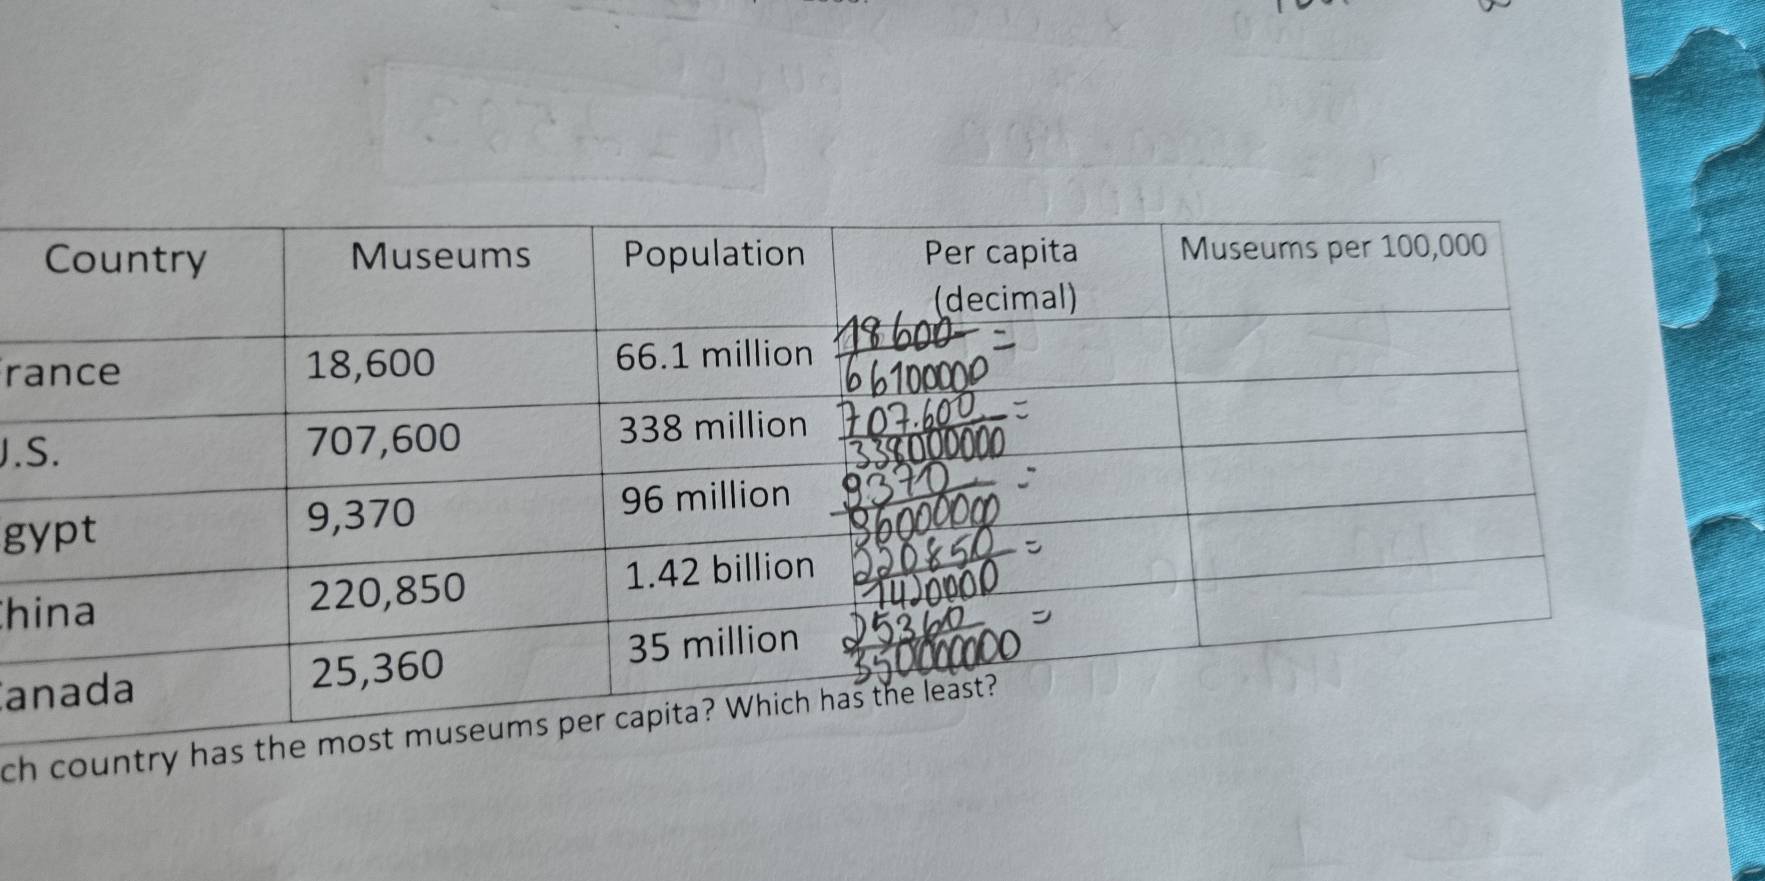 Country Museums Population Per capita (decimal) Museums per 100,000
rance 18,600 66.1 million 18600 / 66100000 =
J.S. 707,600 338 million 707.600 / 338000000 =
gypt 9,370 96 million 9370 / 96000000 =
hina 220,850 1.42 billion 220850 / 1420000 =
anada 25,360 35 million 25360 / 35000000 =
ch country has the most museums per capita? Which has the least?